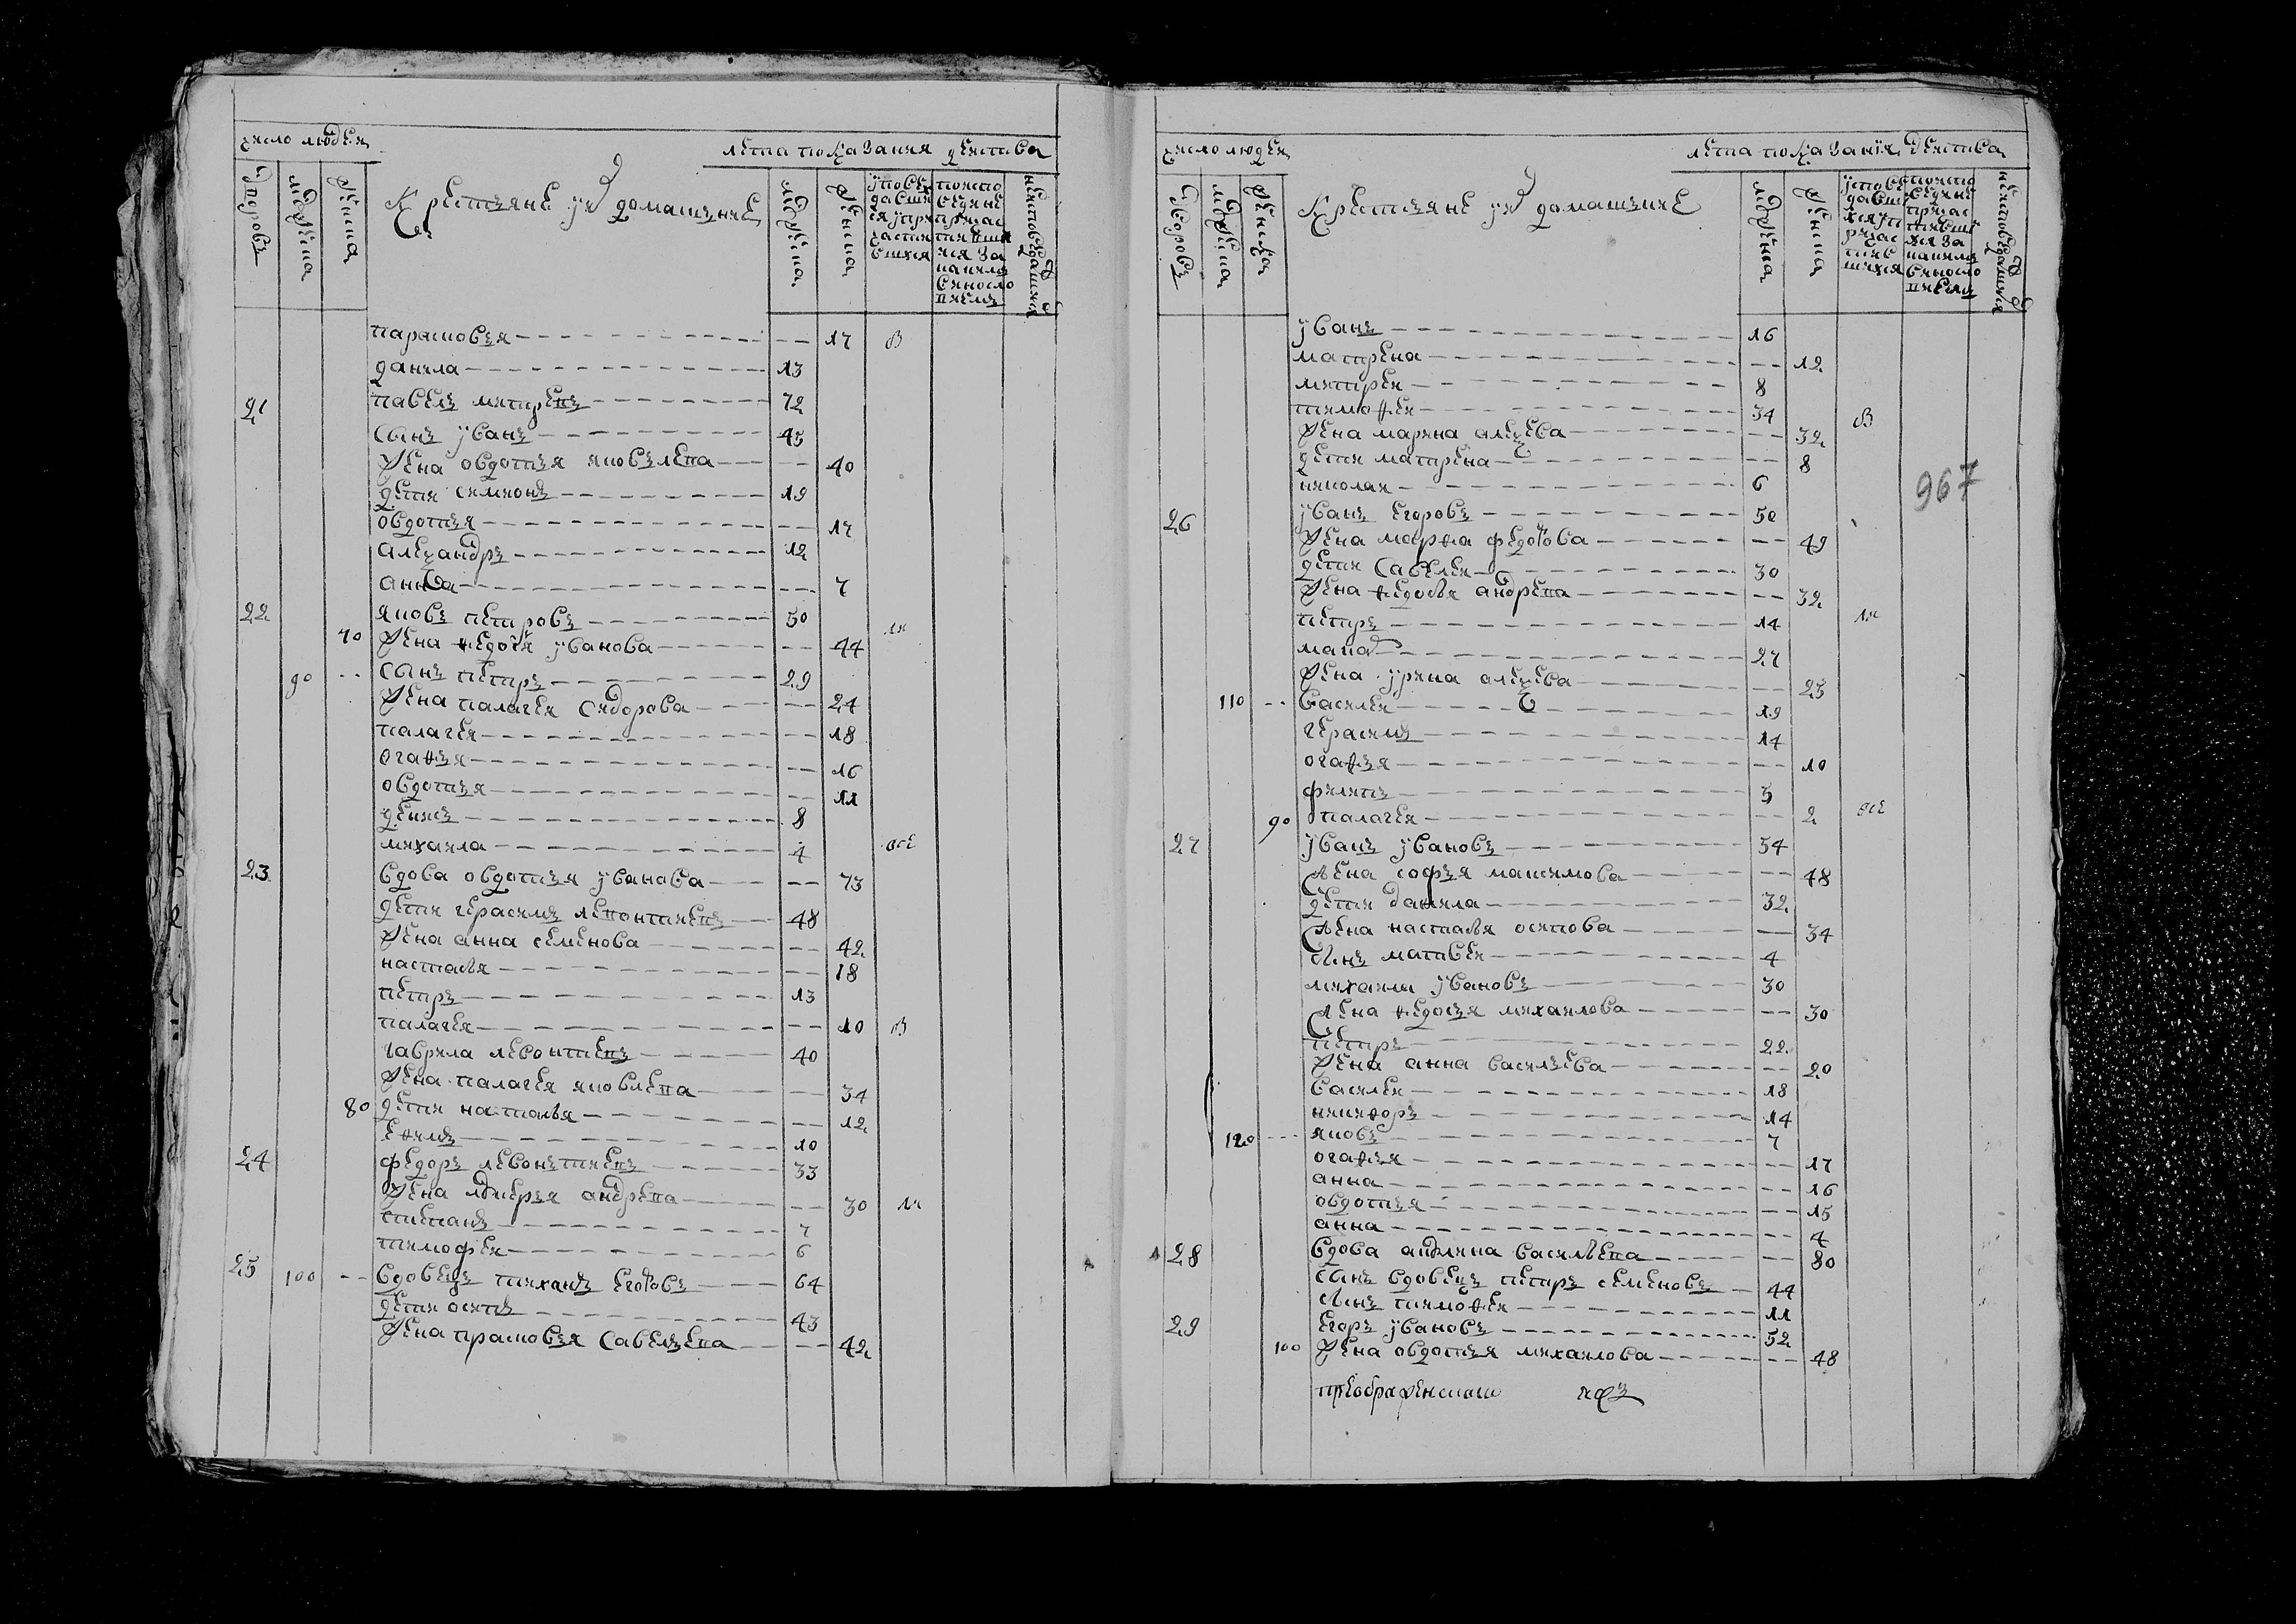 число людей
лета показания действа
дворовъ
мужеска
женска
Крестьяне ихъ домашние
мужеска
женска
исповедавшихся и причастившихся
парасковья 17 в
данила 13
21 павелъ митреевъ 72
сынъ иванъ 45
жена овдотья яковълева 40
дети симионъ 19
овдотья 17
александръ 12
анна 7
22 яковъ петровъ 50
70 жена ѳедосья иванова 44
90 сынъ петръ 29
жена палагея сидорова 24
палагея 18
огаѳья 16
овдотья 11
денисъ 8
михаила 4 все
23 вдова овдотья иванова 73
дети герасимъ левонтиевъ 48
жена анна семенова 42
насталья 18
петръ 13
палагея 10 в
гаврила левонтиевъ 40
жена палагея яковлева 34
80 дети насталья 12
еѳимъ 10
24 федоръ левонътиевъ 33
жена андрева 30
степанъ 7
тимофеи 6
25 100 вдовецъ тиханъ 64
дети осипъ 43
жена прасковья савельева 42
число людей
лета показания действа
дворовъ
мужеска
женска
Крестьяне ихъ домашние
мужеска
женска
967
иванъ 16
матрена 12
митреи 8
тимоѳеи 34 в
жена марина алексева 32
дети матрена 8
николаи 6
26 иванъ егоровъ 50
жена марѳа федотова 49
дети савелеи 30
жена ѳедосья андрева 32
петръ 14
27
жена ирина алексева 25
110 василеи 19
герасимъ 14
огаѳья 10
филипъ 5
90 палагея 2 все
27 иванъ ивановъ 54
жена софья максимова 48
дети данила 32
жена насталья осипова 34
сынъ матвеи 4
михаила ивановъ 30
жена ѳедосья михаилова 30
петръ 22
жена анна васильева 20
василеи 18
никиѳоръ 14
120 яковъ 7
огаѳья 17
анна 16
овдотья 15
анна 4
28 вдова васильева 80
сынъ вдовецъ петръ семеновъ 44
сынъ тимоѳеи 11
29 егоръ ивановъ 52
100 жена овдотья михаилова 48
преображенскаго